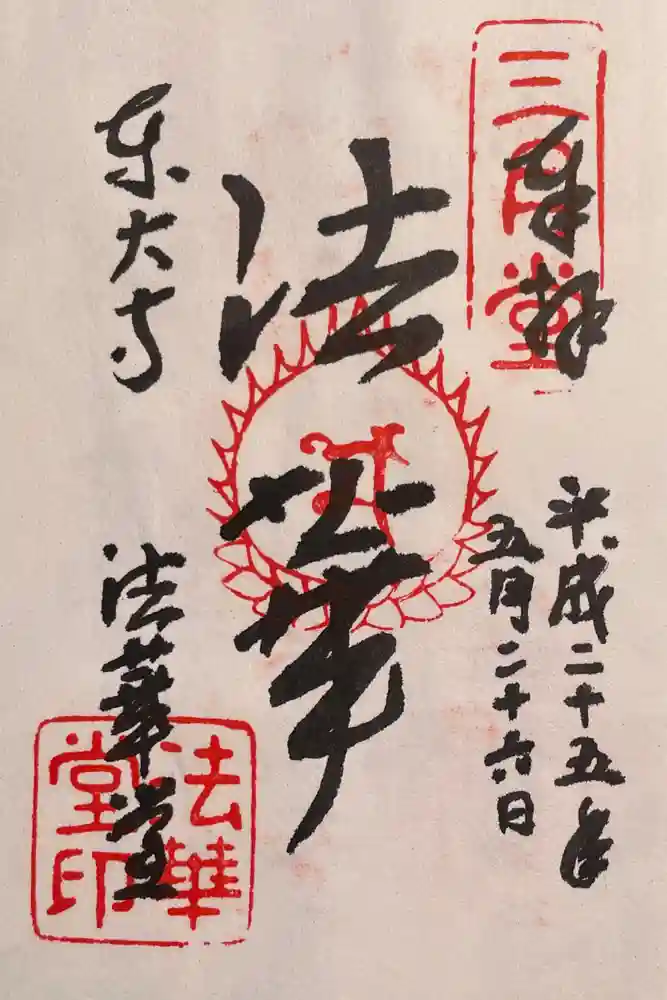 三月堂
奉拝
平成二十五年
五月二十六日
法華
東大寺
法華堂
法華
堂印